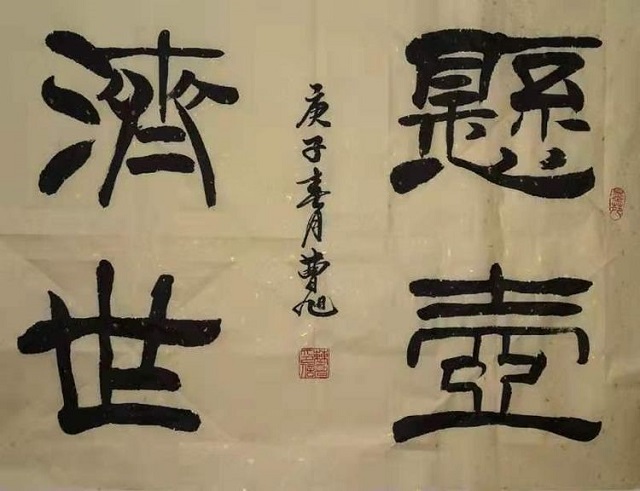 懸壺
濟世
庚子春月曹旭